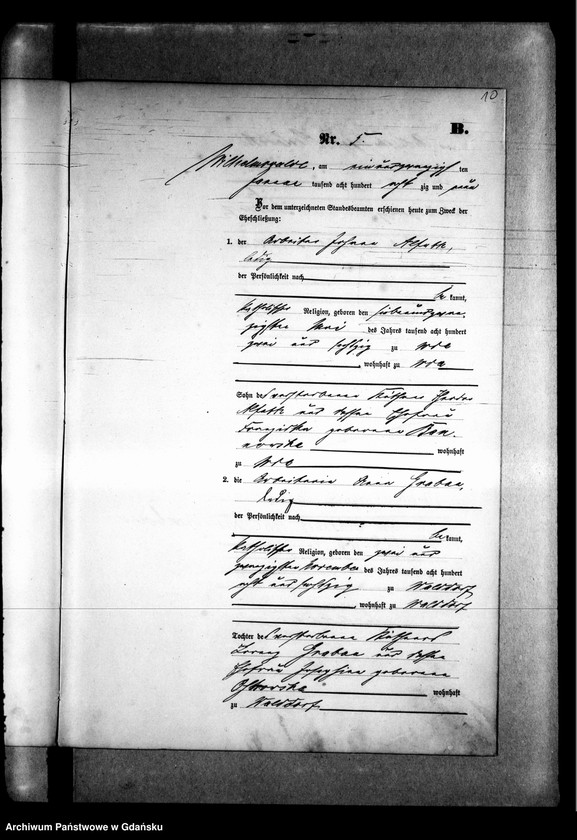 10
B.
Nr. 5.
Wilhelmswalde, am einundzwanzigsten
Januar tausend acht hundert achtzig und neun
Vor dem unterzeichneten Standesbeamten erschienen heute zum Zweck der
Eheschließung:
1. der Arbeiter Johann
ledig
der Persönlichkeit nach
be kannt,
katholischer Religion, geboren den siebenundzwan-
zigsten Mai des Jahres tausend acht hundert
zwei und sechszig zu Wda
, wohnhaft zu Wda
Sohn des verstorbenen Käthners
und dessen Ehefrau
Franziska geborenen
wohnhaft
zu Wda
2. die Arbeiterin Anna Graban,
ledig
der Persönlichkeit nach
be kannt,
katholischer Religion, geboren den zwei und
zwanzigsten November des Jahres tausend acht hundert
acht und sechszig zu Walddorf
, wohnhaft zu Walddorf
Tochter des verstorbenen Käthners
Lorenz Graban und dessen
Ehefrau Josephine geborenen
Ossowska wohnhaft
zu Walddorf
Archiwum Państwowe w Gdańsku